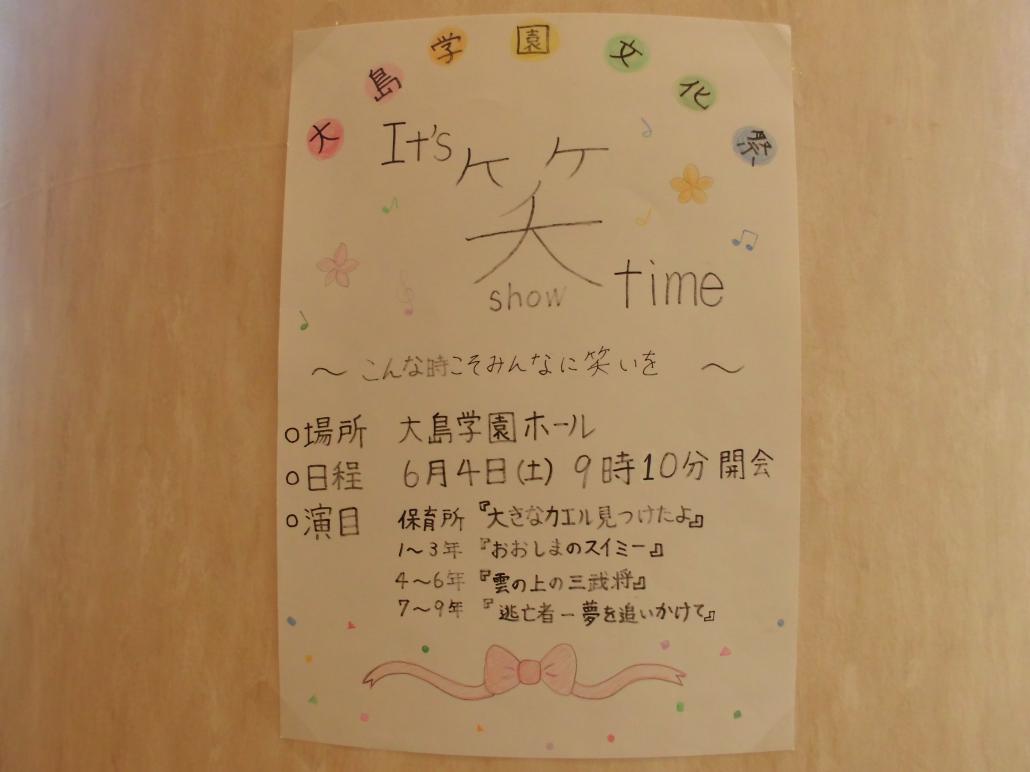 大島学園文化祭
It's 笑 time
show
～こんな時こそみんなに笑いを～
○場所 大島学園ホール
○日程 6月4日(土) 9時10分開会
○演目 保育所『大きなカエル見つけたよ』
1～3年『おおしまのスイミー』
4～6年『雲の上の三武将』
7～9年『逃亡者－夢を追いかけて』